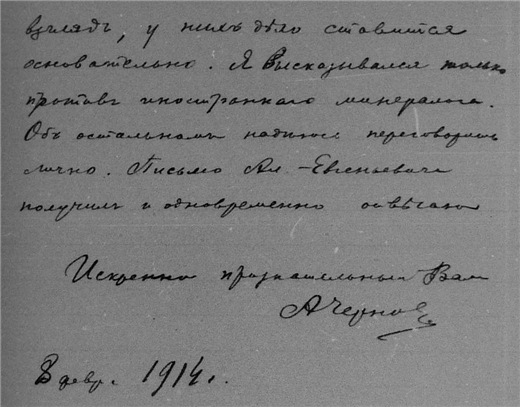 взглядъ, у нихъ дѣло ставится
основательно. Я высказывался только
противъ иностраннаго минералога.
Объ остальномъ надѣюсь переговорить
лично. Письмо Ал. Евгеньевича
получилъ и одновременно отвѣчаю
Искренно признательный Вам
АЧернов
8 февр. 1914 г.